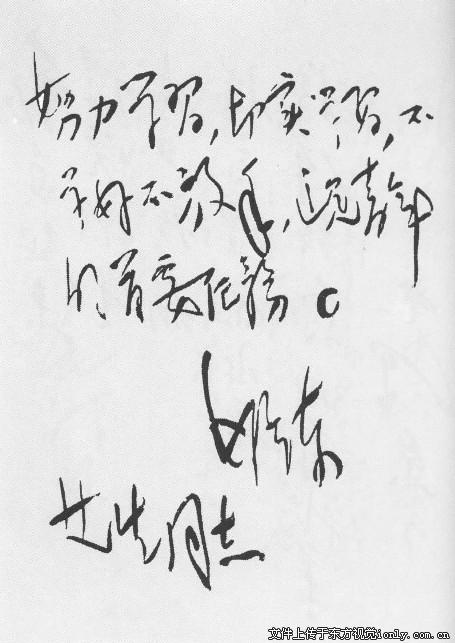 努力学习,切实学习,不
学好不放手,这是青年
的首要任務。
同志
文件上传于东方视觉ionly.com.cn